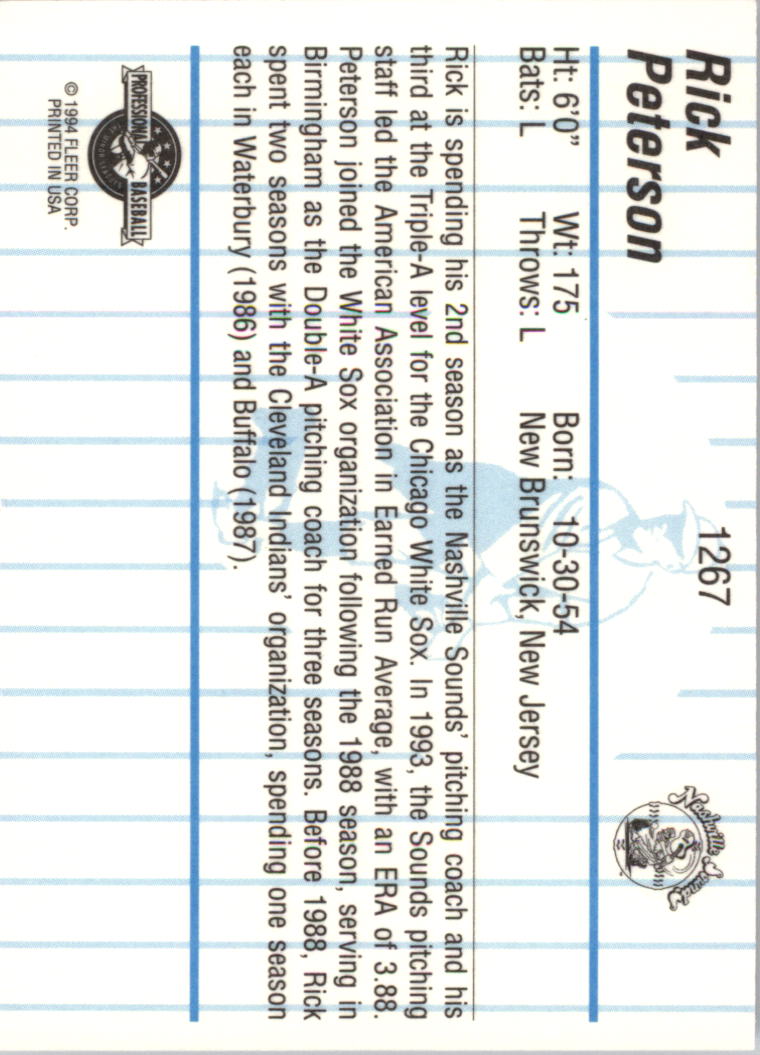 Rick
Peterson
1267
Nashville Sounds
Ht: 6'0" Wt: 175 Born: 10-30-54
Bats: L Throws: L New Brunswick, New Jersey
Rick is spending his 2nd season as the Nashville Sounds' pitching coach and his
third at the Triple-A level for the Chicago White Sox. In 1993, the Sounds pitching
staff led the American Association in Earned Run Average, with an ERA of 3.88.
Peterson joined the White Sox organization following the 1988 season, serving in
Birmingham as the Double-A pitching coach for three seasons. Before 1988, Rick
spent two seasons with the Cleveland Indians' organization, spending one season
each in Waterbury (1986) and Buffalo (1987).
PROFESSIONAL BASEBALL
© 1994 FLEER CORP.
PRINTED IN USA